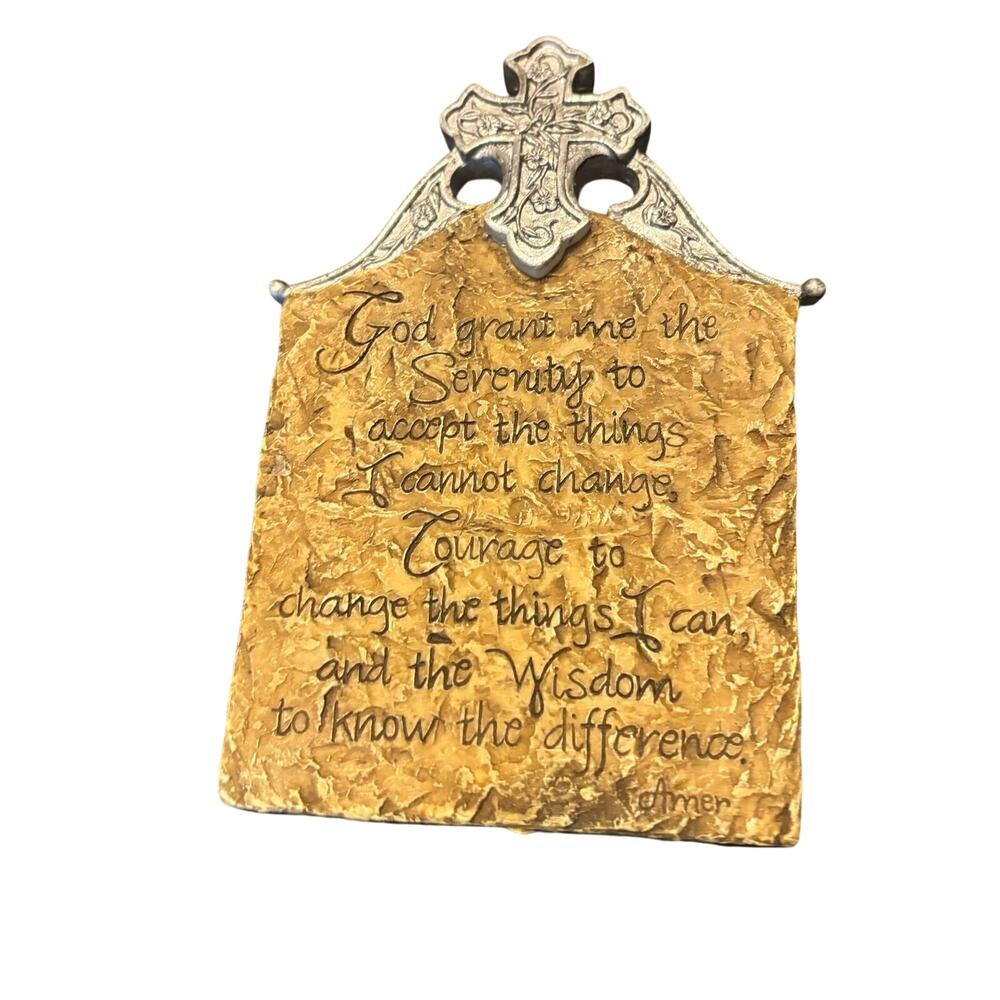 God grant me the
Serenity to
accept the things
I cannot change,
Courage to
change the things I can,
and the Wisdom
to know the difference.
Amen